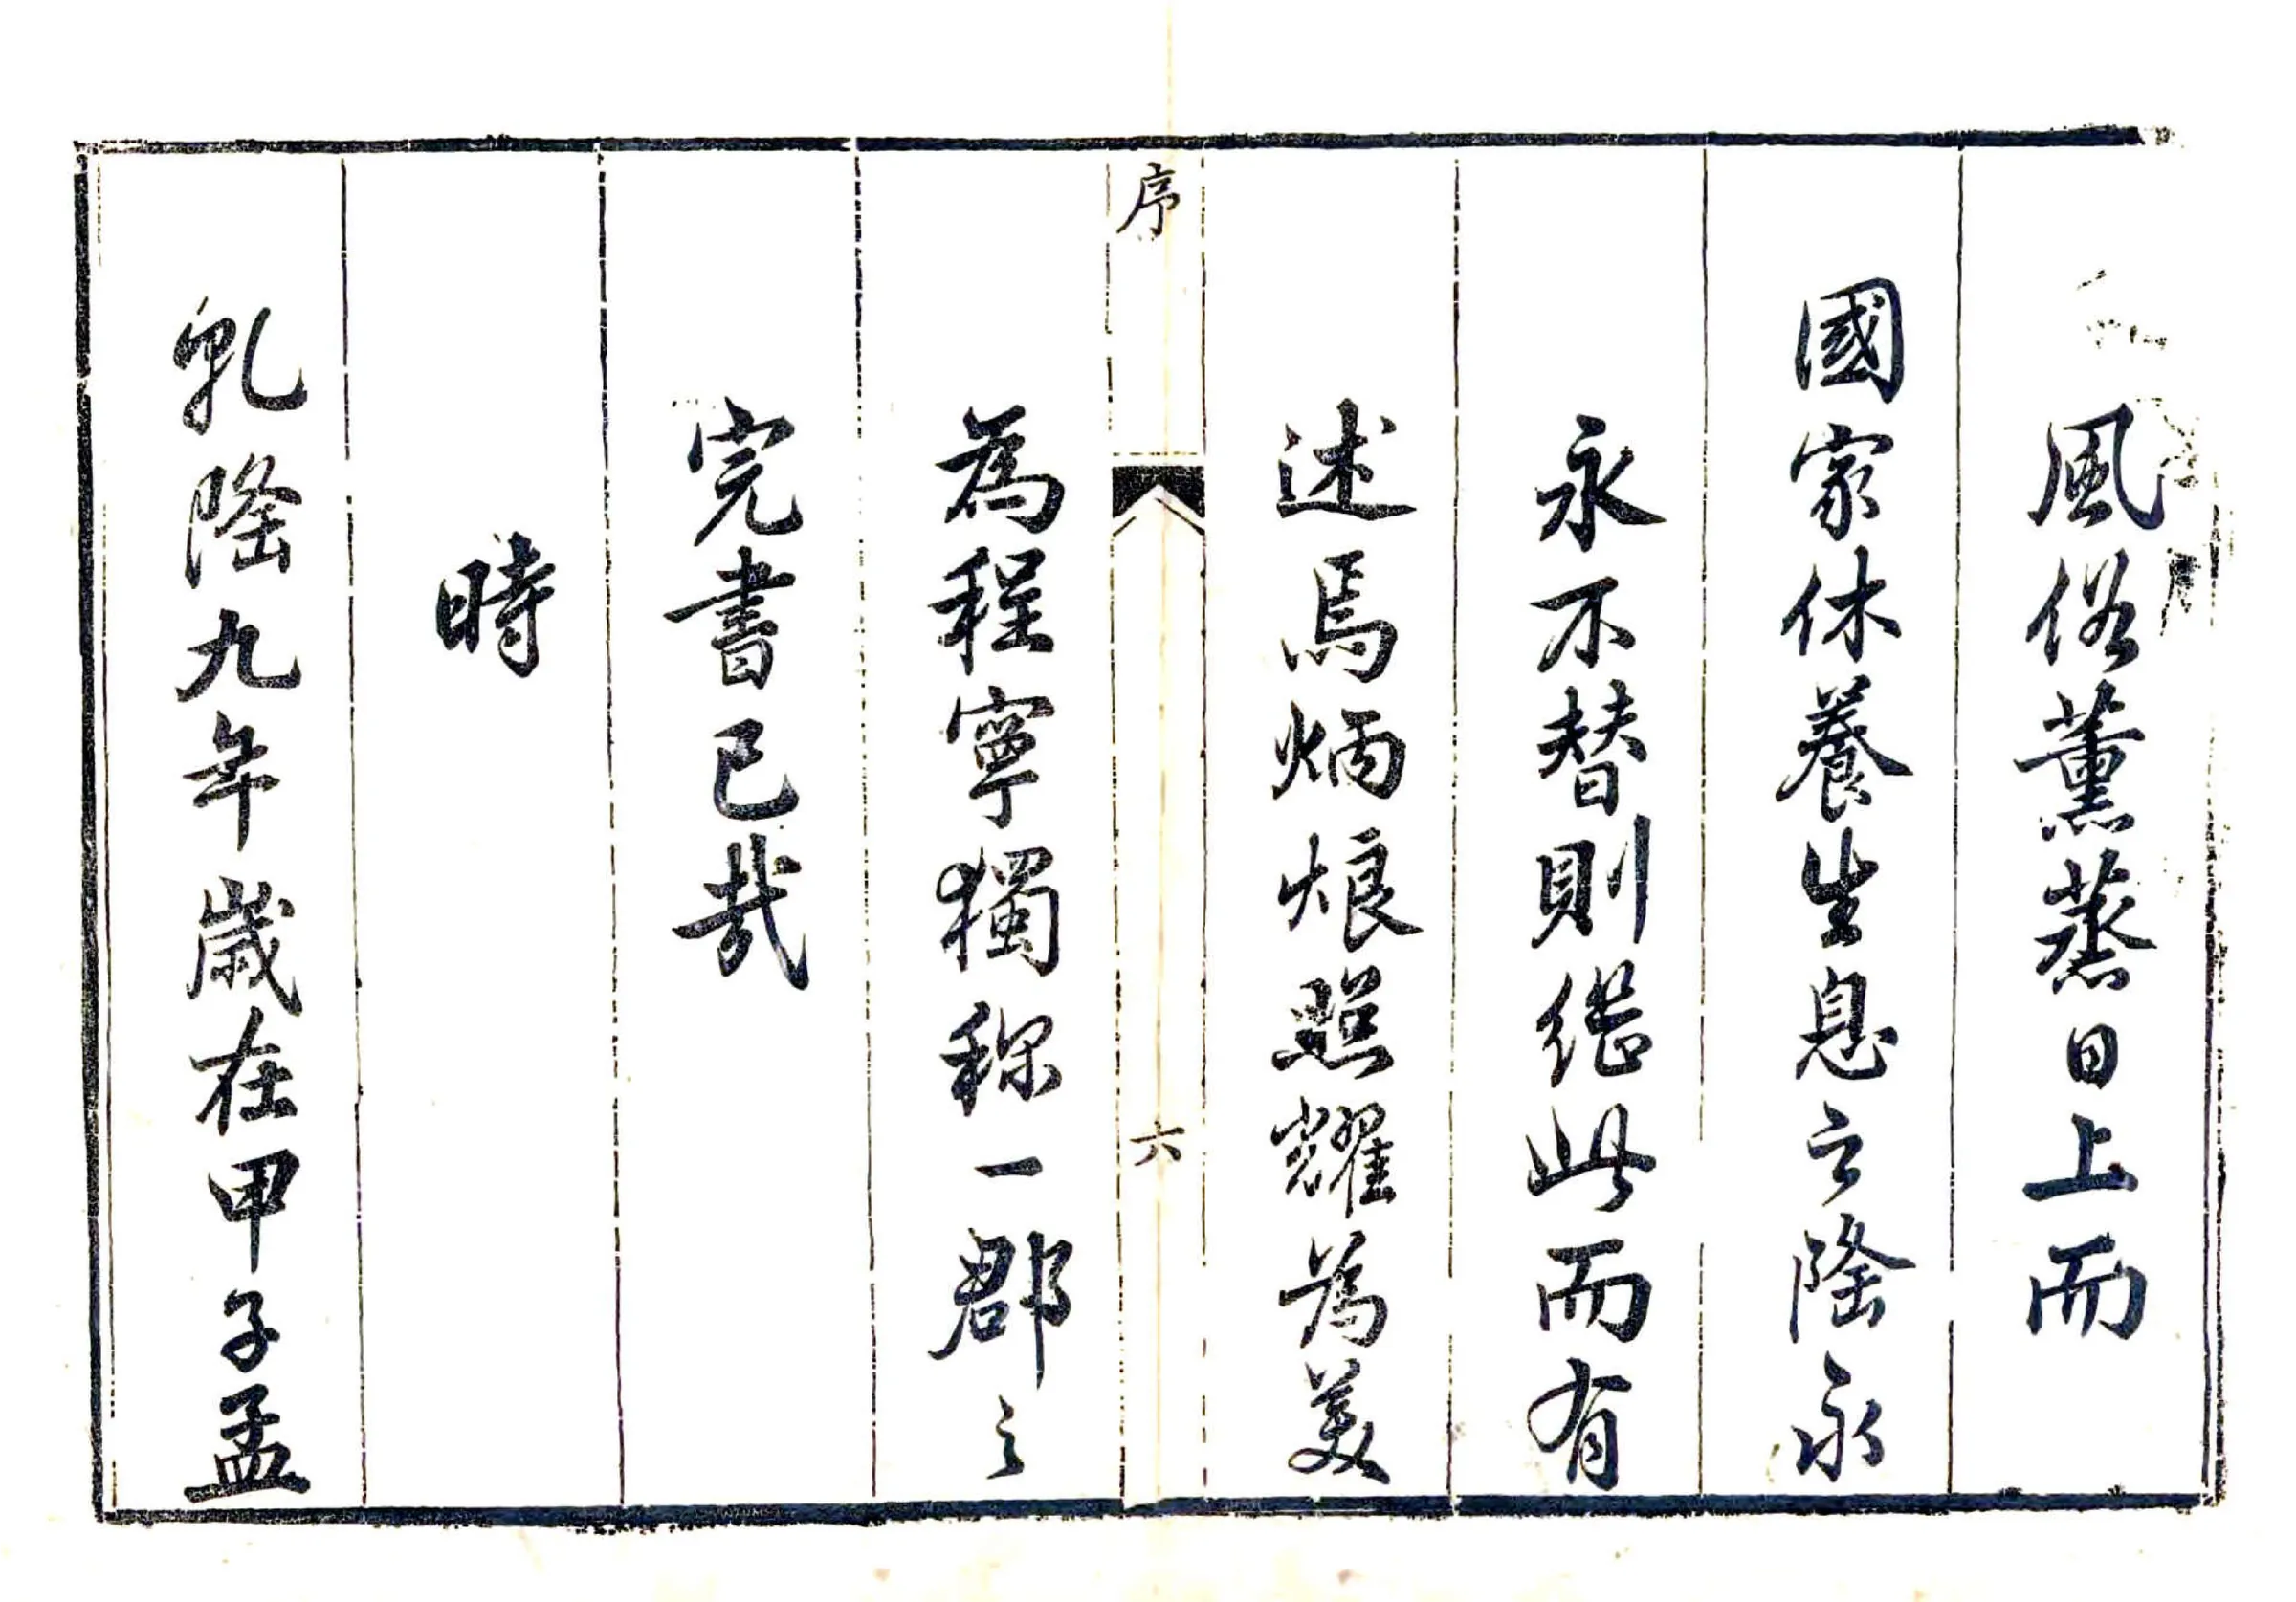 風俗薰蒸日上而
國家休養生息之隆永
永不替則継此而有
述焉炳烺照耀為美
序
六
為程寧獨称一郡之
完書已哉
時
乹隆九年歲在甲子孟